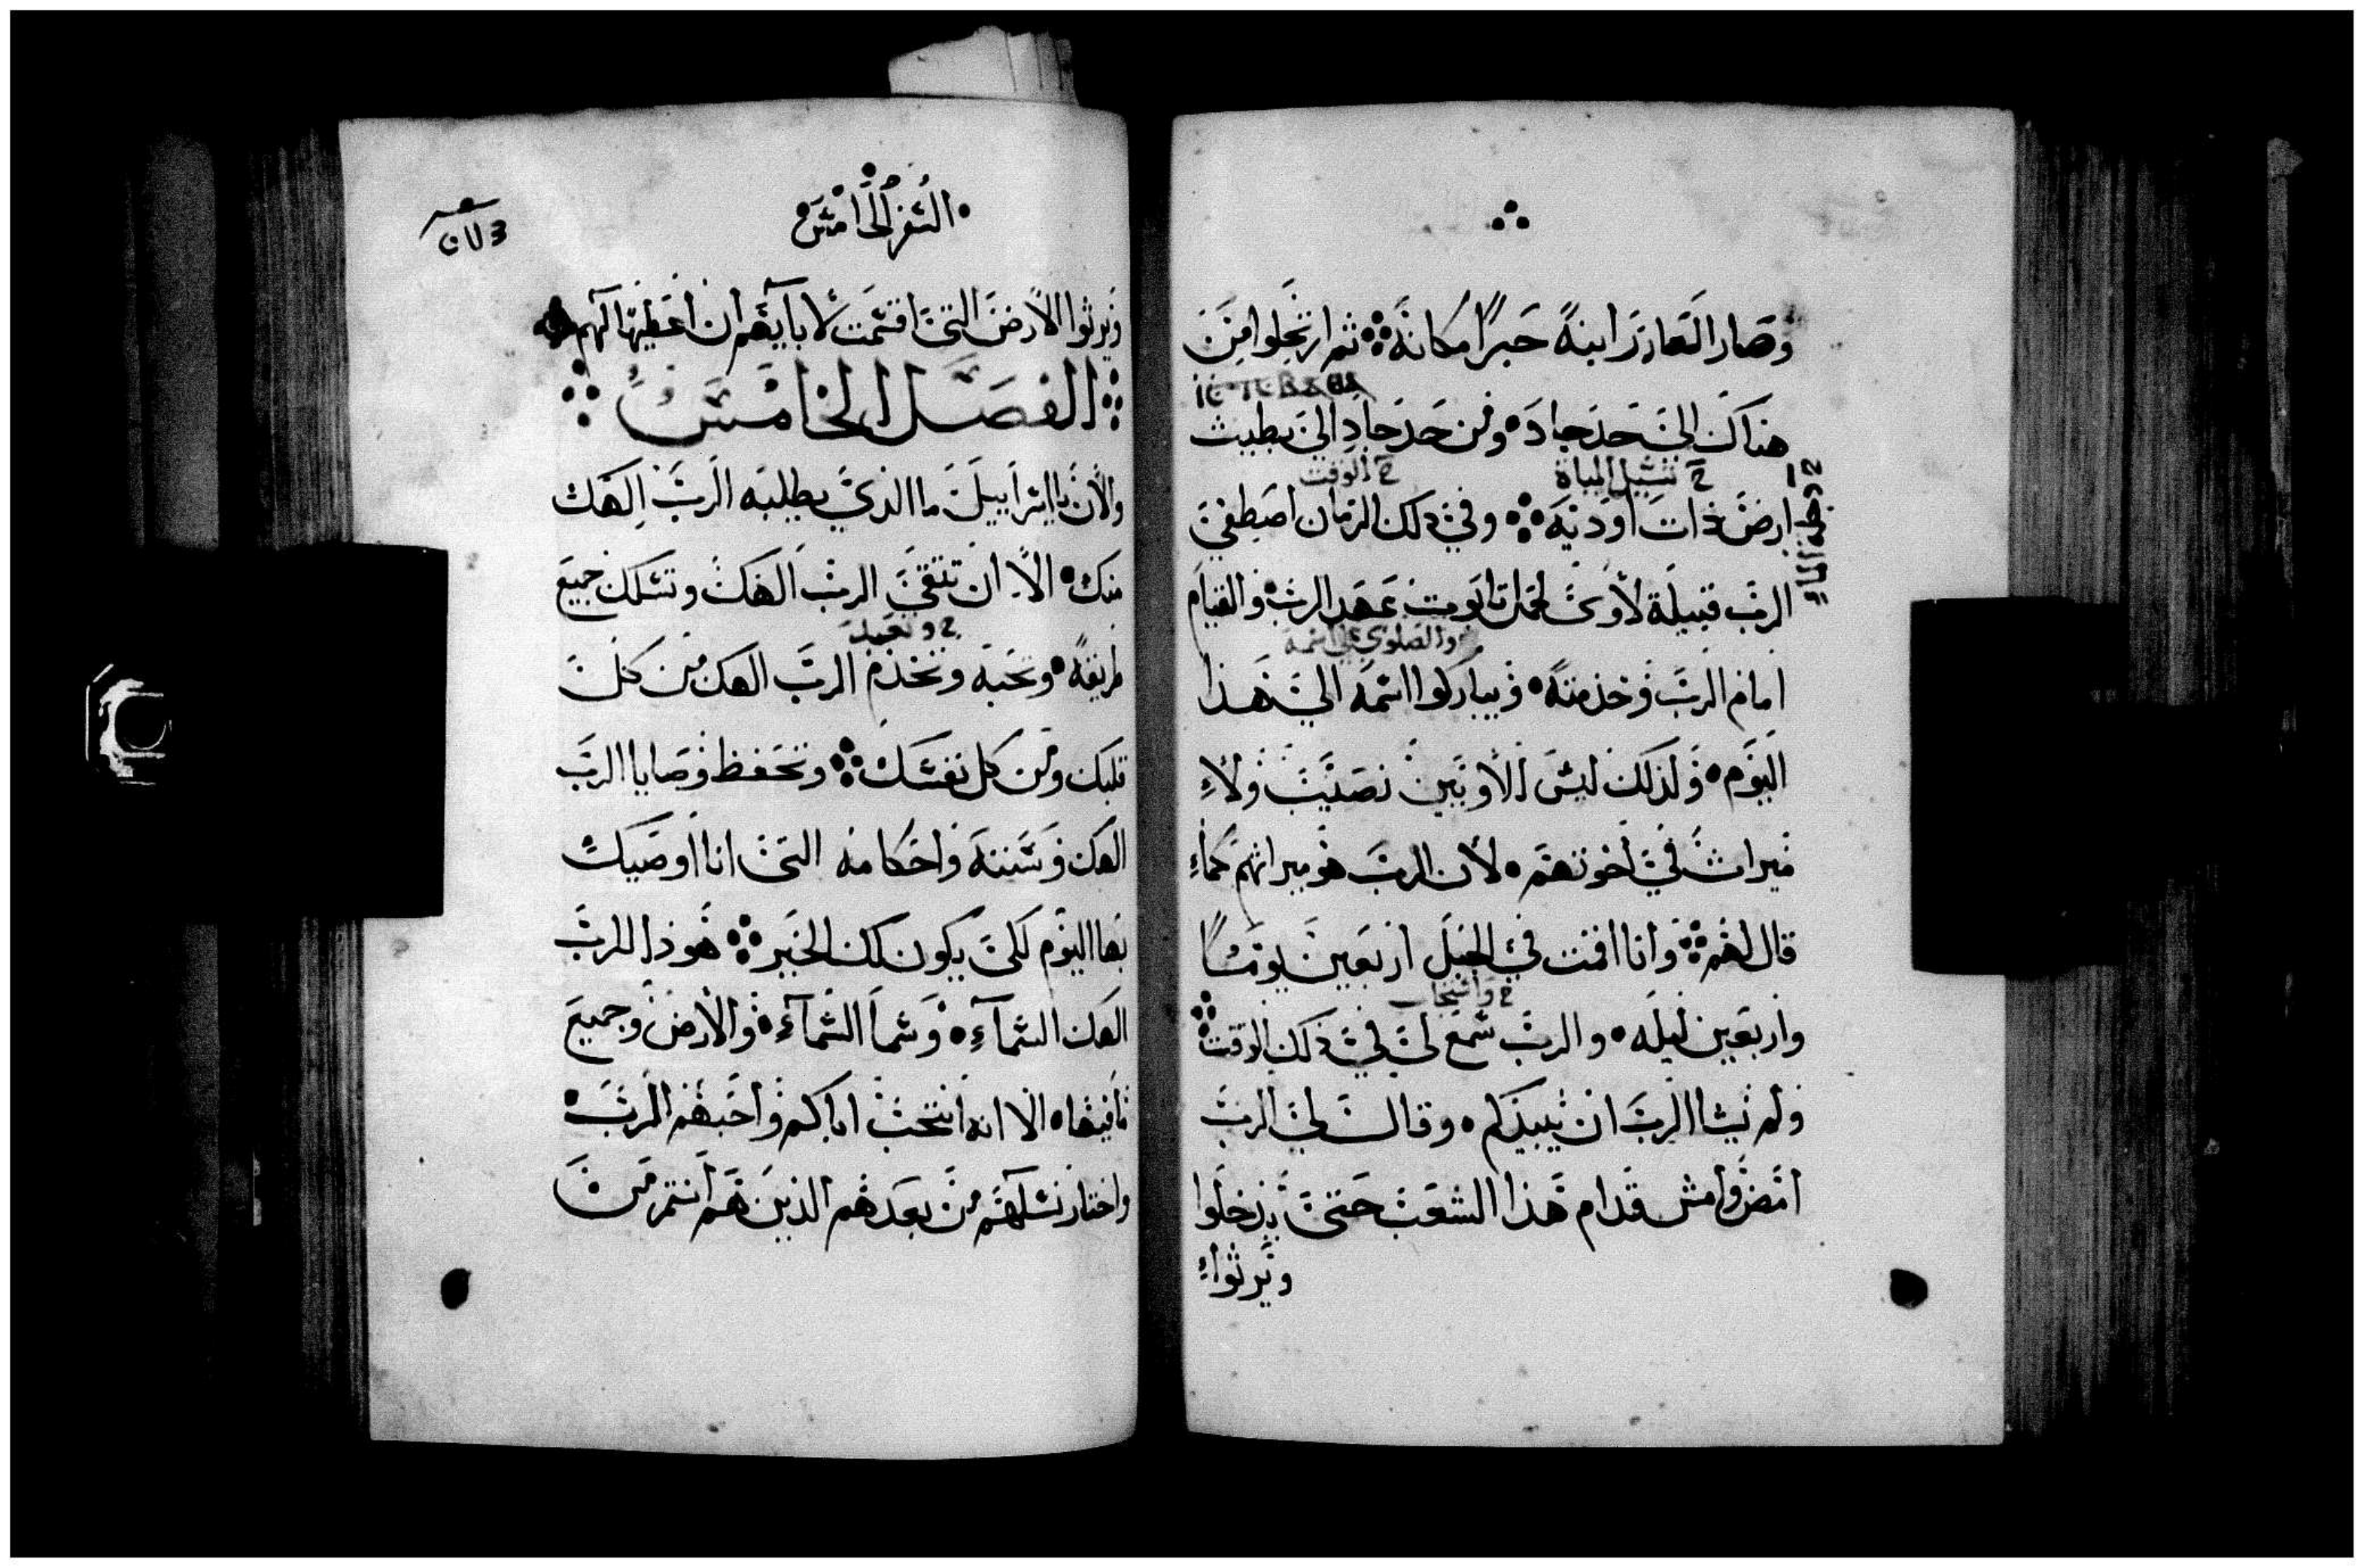 وصار العازر ابنه حبرًا مكانه ثم ارتحلوا من
هناك الي حد جاد ومن حد جاد الي يطبيث
ح تسيل المياة
ح الوقت
ارض ذات اودية وفي ذلك الزمان اصطفي
الرب قبيلة لاوي لحمل تابوت عهد الرب والقيام
والصلوة علي اسمه
امام الرب وخدمته ويباركوا اسمه الي هذا
اليوم ولذلك ليس للاويين نصيب ولا
ميراث في اخوتهم لان الرب هو ميراثهم كما
قال لهم وانا اقمت في الجبل اربعين يومًا
ح واستجاب
واربعين ليله والرب سمع لي في ذلك الوقت
ولم يشا الرب ان يبيدكم وقال لي الرب
امض وامش قدام هذا الشعب حتي يدخلوا
ويرثوا
السفر الخامس
ويرثوا الارض التي اقسمت لابايهم ان اعطيها لهم
الفصل الخامس
والان يا اسراييل ما الذي يطلبه الرب الهك
منك الا ان تتقي الرب الهك وتسلك جميع
ح وتعبد
طريقه وتحبه وتخدم الرب الهك من كل
قلبك ومن كل نفسك وتحفظ وصايا الرب
الهك وسننه واحكامه التي انا اوصيك
بها اليوم لكي يكون لك الخير هوذا للرب
الهك السماء وسما السماء والارض وجميع
ما فيها الا انه انتخب اباكم واحبهم الرب
واختار نسلهم من بعدهم الذين هم انتم من